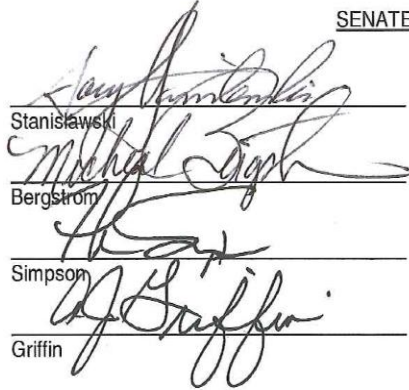 SENATE
Stanislawski
Micheal Bergstrom
Bergstrom
Simpson
AJ Griffin
Griffin